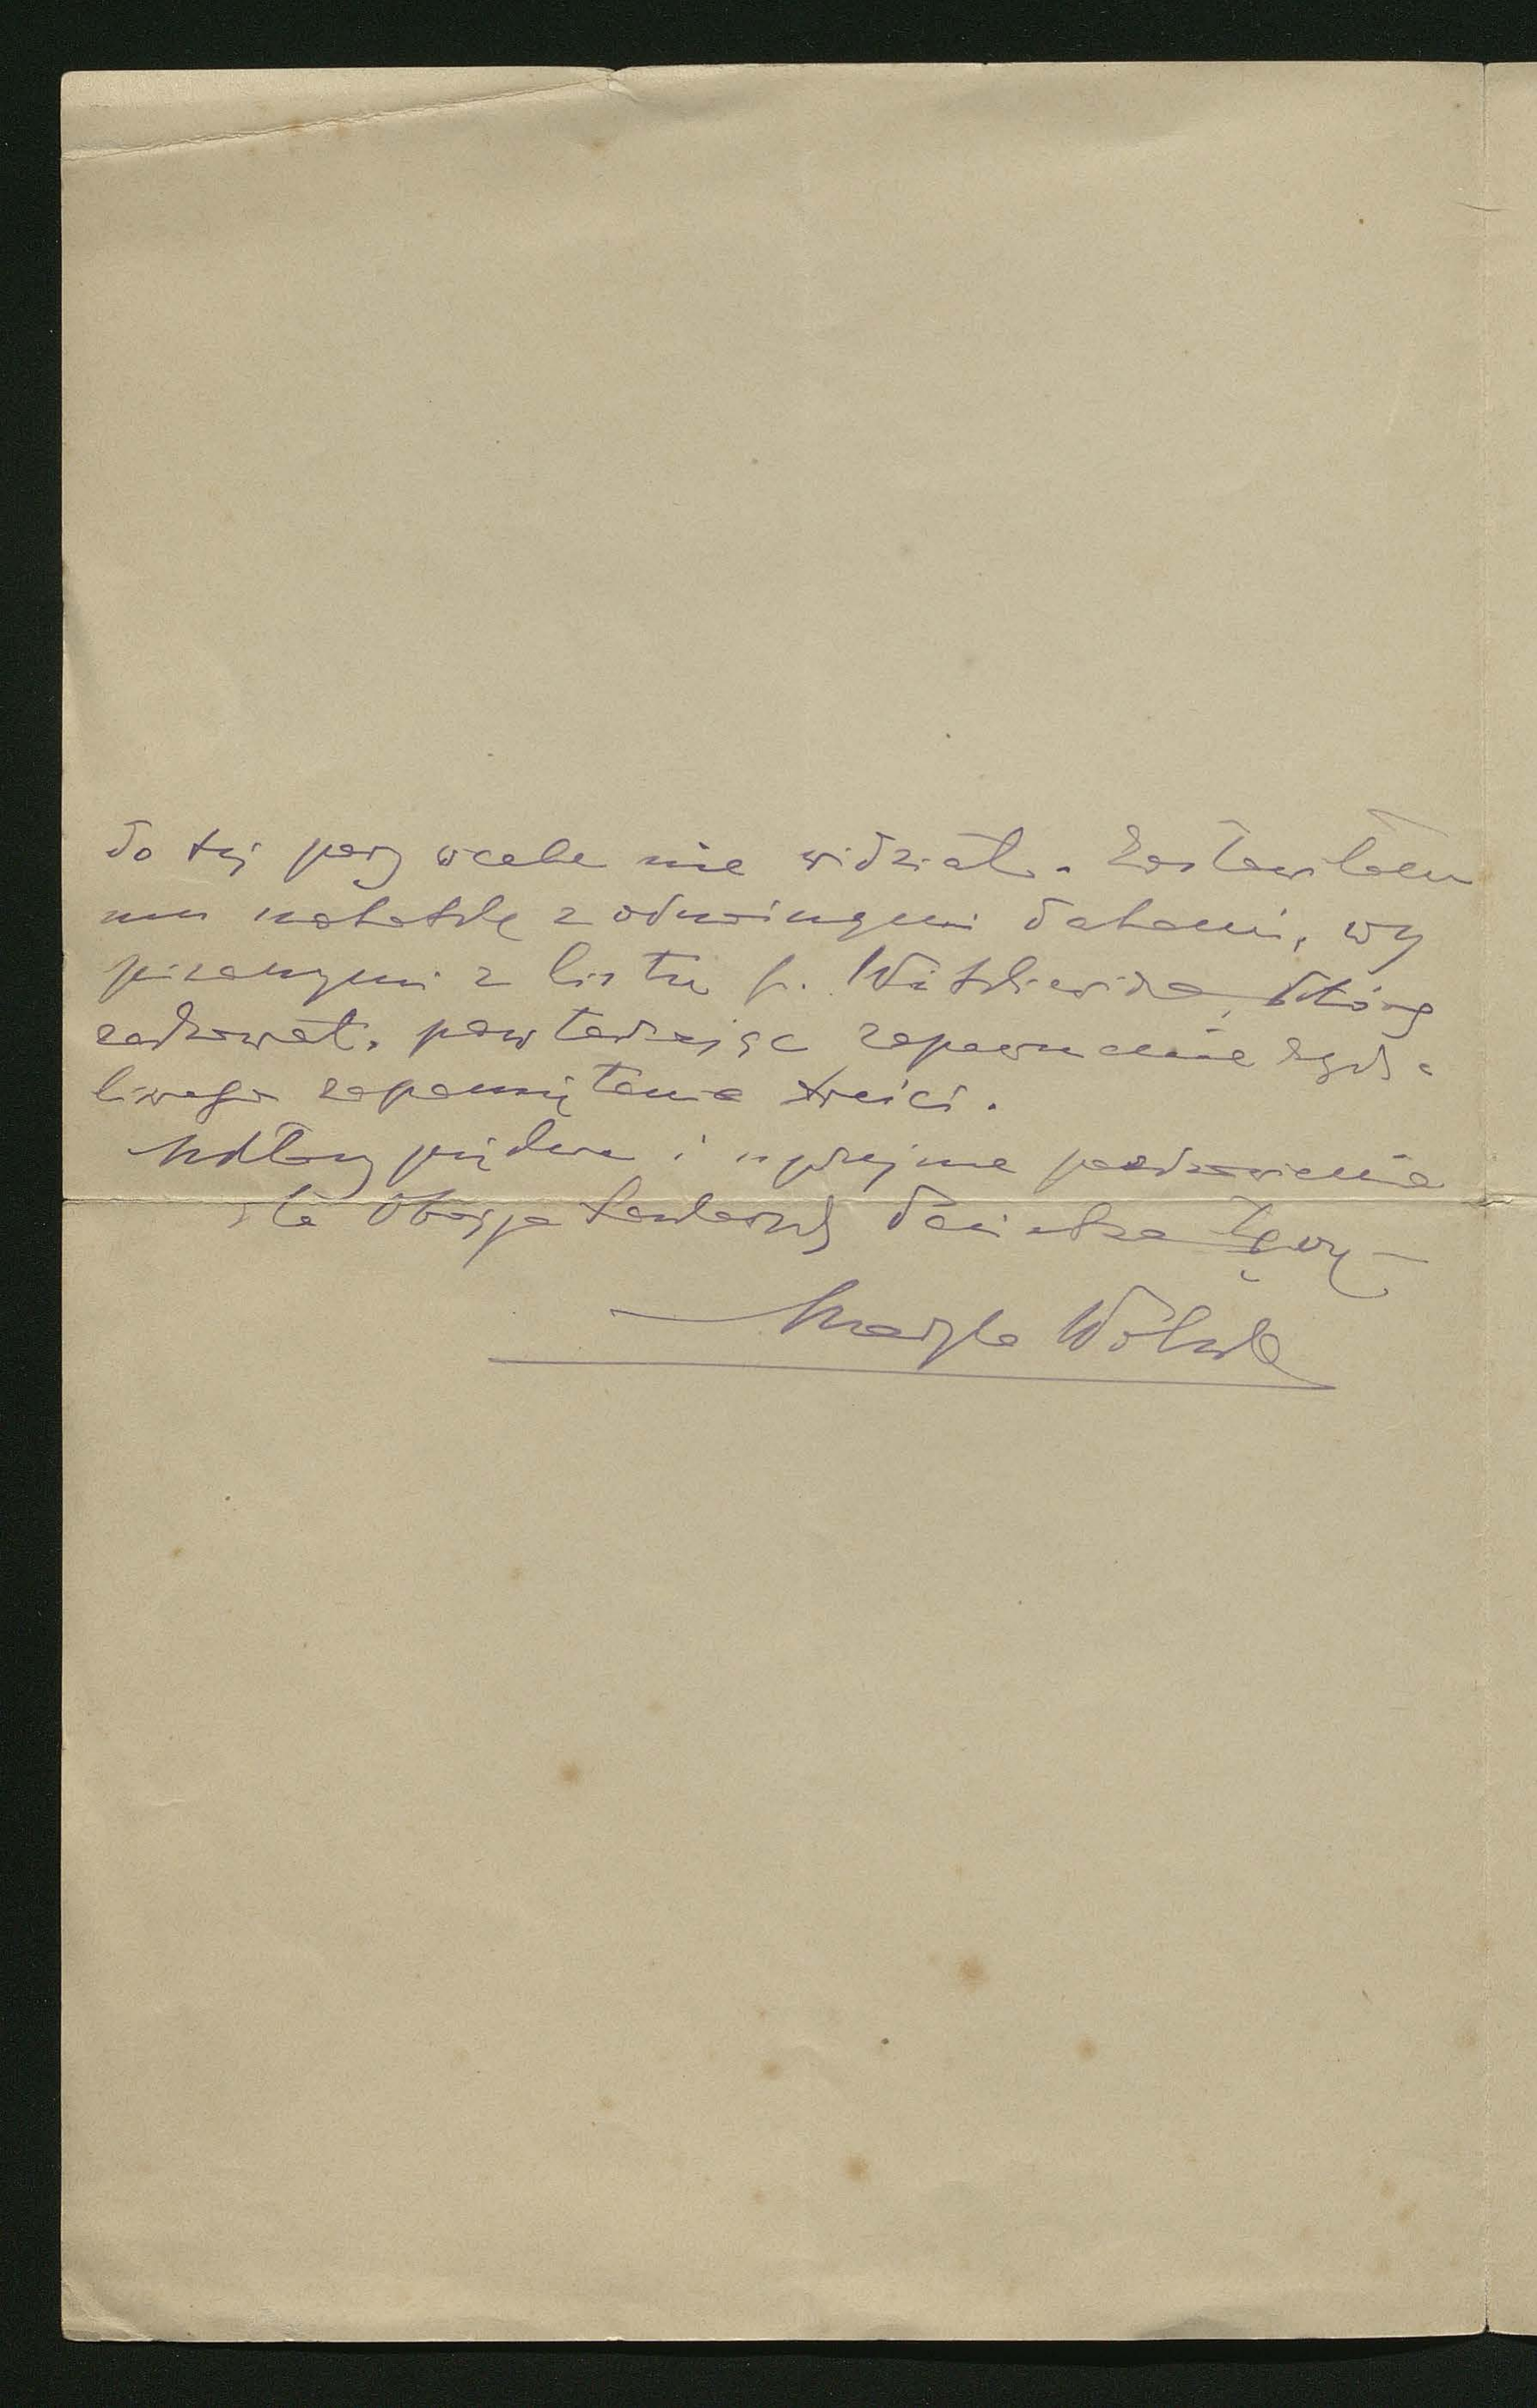 do tej pory wcale nie widział. Zostawiłam
mu notatkę z odnośnymi datami, wy
pisanymi z listu p. Witkiewicza, który
zachował, powtarzając zapewnienie życz-
liwego zapamiętania treści.
i uprzejme pozdrowienie
dla Obojga Państwa łączy
Maryla Wolska